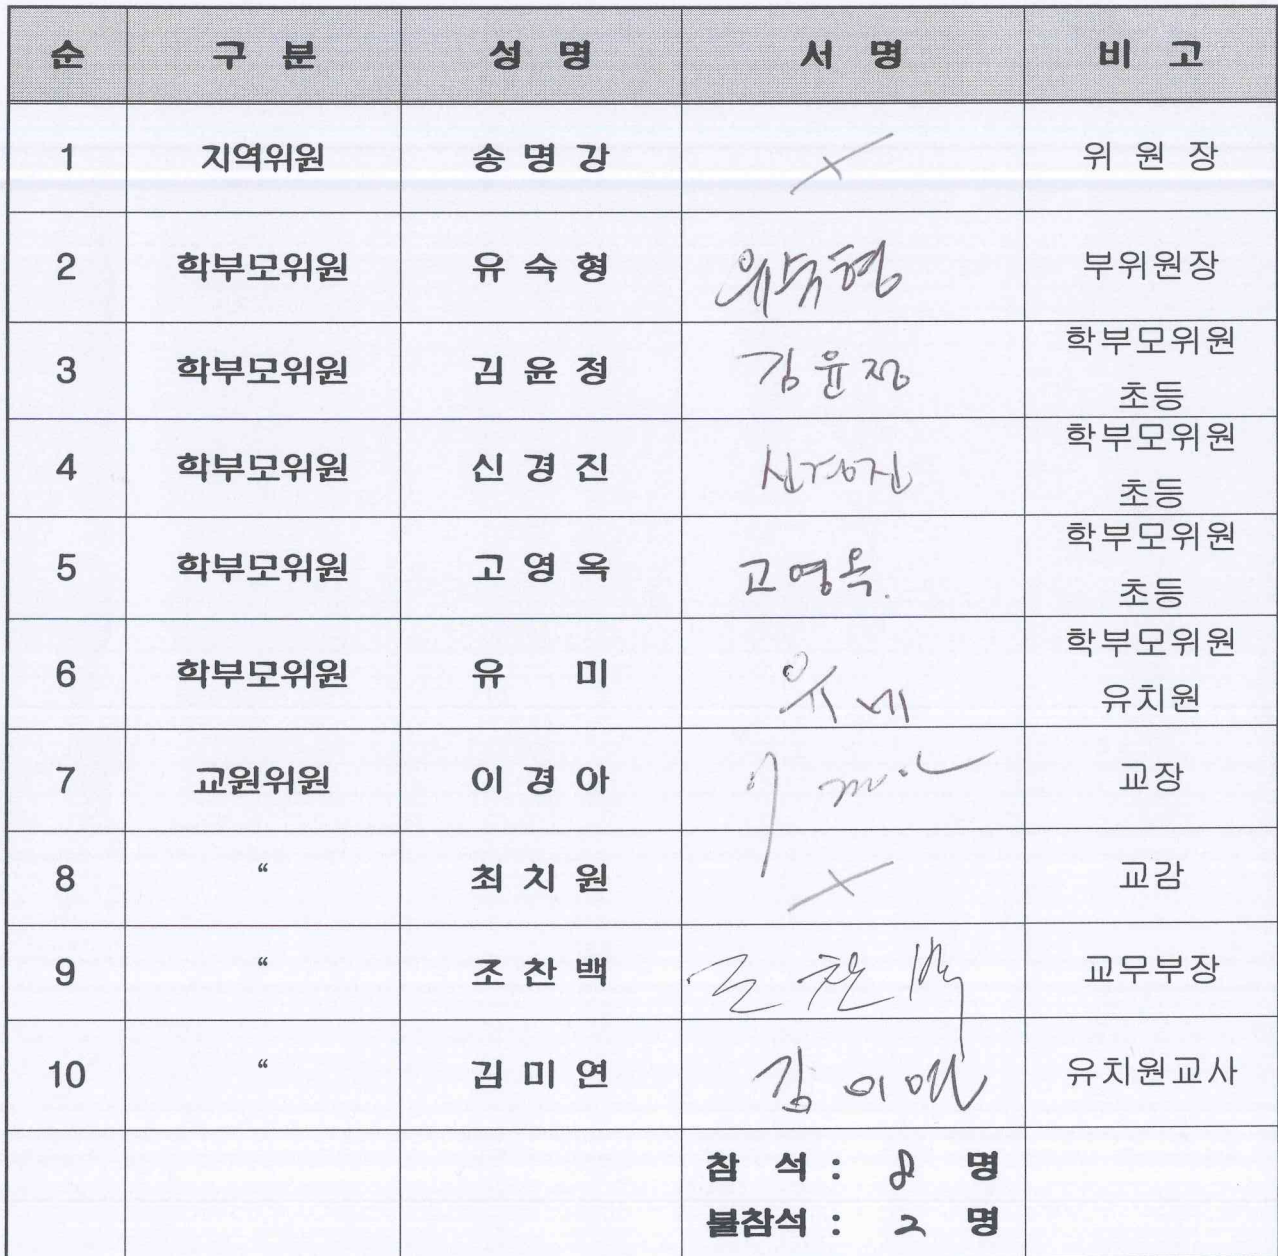 순 구 분 성 명 서 명 비 고
1 지역위원 송명강 위원장
2 학부모위원 유숙형 유숙형 부위원장
3 학부모위원 김윤정 김윤정 학부모위원
초등
4 학부모위원 신경진 신경진 학부모위원
초등
5 학부모위원 고영옥 고영옥. 학부모위원
초등
6 학부모위원 유 미 유미 학부모위원
유치원
7 교원위원 이경아 교장
8 “ 최치원 교감
9 “ 조찬백 조찬백 교무부장
10 “ 김미연 김미연 유치원교사
참 석 : 8 명
불참석 : 2 명